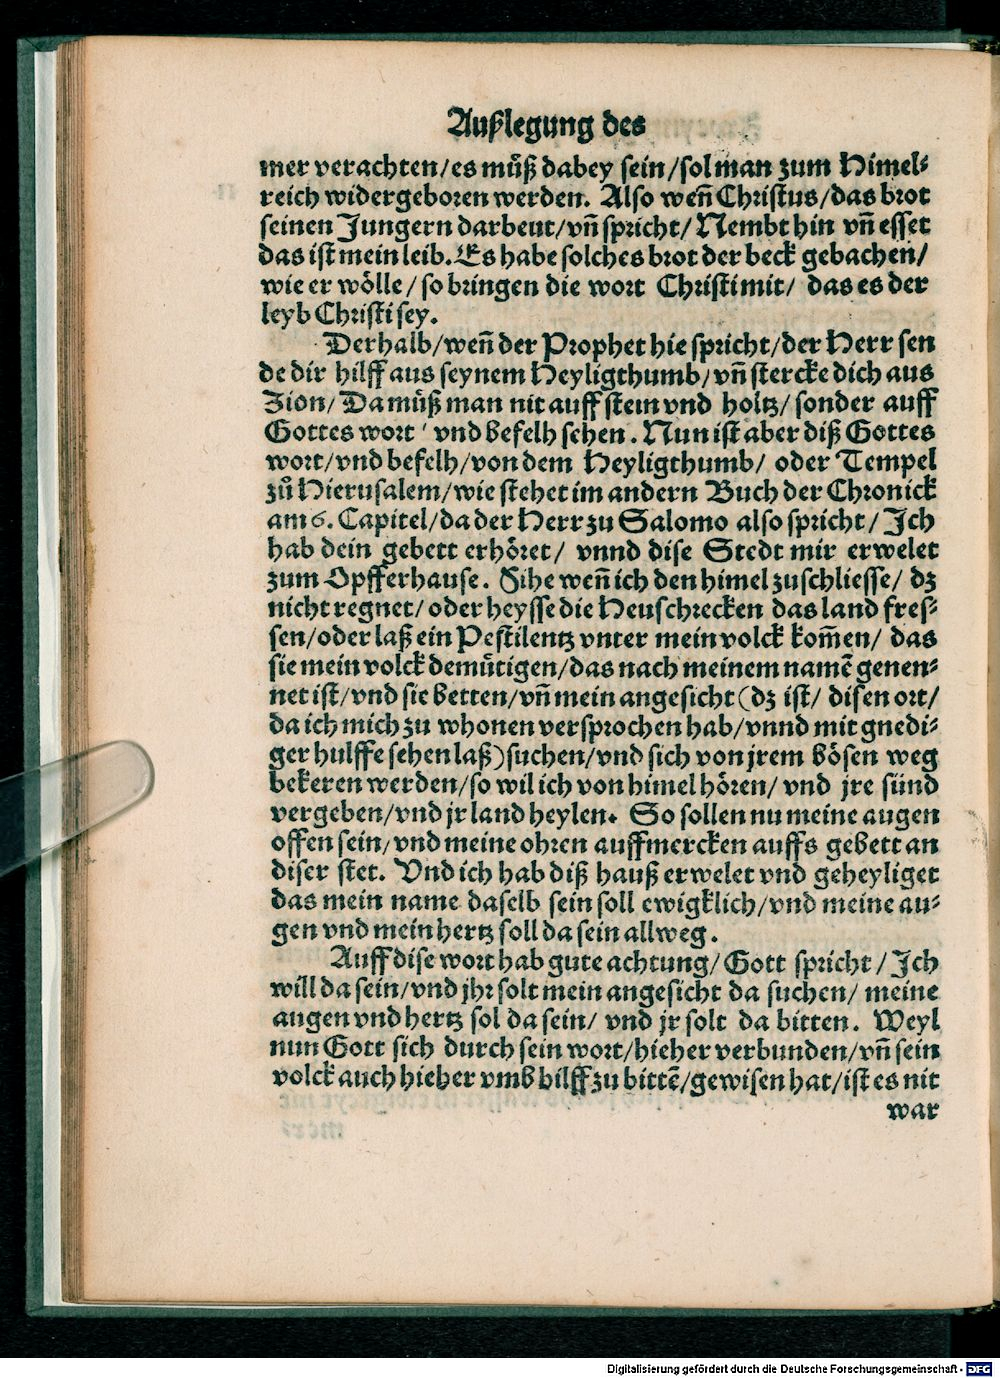 Außlegung des
mer verachten/es muͤß dabey sein/sol man zum Himel⸗
reich widergeboren werden. Also weñ Christus/das brot
seinen Jungern darbeut/vñ spricht/Nembt hin vñ esset
das ist mein leib. Es habe solches brot der beck gebachen/
wie er woͤlle/so bringen die wort Christi mit/ das es der
leyb Christi sey.
Derhalb/weñ der Prophet hie spricht/der Herr sen
de dir hilff aus seynem Heyligthumb/vñ stercke dich aus
Zion/ Da muͤß man nit auff stein vnd holtz/sonder auff
Gottes wort/ vnd befelh sehen. Nun ist aber diß Gottes
wort/vnd befelh/von dem Heyligthumb/ oder Tempel
zuͦ Hierusalem/wie stehet im andern Buch der Chronick
am 6. Capitel/da der Herr zu Salomo also spricht/Ich
hab dein gebett erhoͤret/ vnnd dise Stedt mir erwelet
zum Opfferhause. Sihe weñ ich den himel zuschliesse/ dz
nicht regnet/oder heysse die Heuschrecken das land fres⸗
sen/oder laß ein Pestilentz vnter mein volck kom̃en/ das
sie mein volck demuͤtigen/das nach meinem namẽ genen⸗
net ist/vnd sie betten/vñ mein angesicht (dz ist/ disen ort/
da ich mich zu whonen versprochen hab/vnnd mit gnedi⸗
ger hulffe sehen laß) suchen/vnd sich von jrem boͤsen weg
bekeren werden/so wil ich von himel hoͤren/ vnd jre suͤnd
vergeben/vnd jr land heylen. So sollen nu meine augen
offen sein/vnd meine ohren auffmercken auffs gebett an
diser stet. Vnd ich hab diß hauß erwelet vnd geheyliget
das mein name daselb sein soll ewigklich/vnd meine au⸗
gen vnd mein hertz soll da sein allweg.
Auff dise wort hab gute achtung/Gott spricht/Ich
will da sein/vnd jhr solt mein angesicht da suchen/ meine
augen vnd hertz sol da sein/ vnd jr solt da bitten. Weyl
nun Gott sich durch sein wort/hieher verbunden/vñ sein
volck auch hieher vmb hilff zu bittẽ/gewisen hat/ist es nit
war
Digitalisierung gefördert durch die Deutsche Forschungsgemeinschaft - DFG